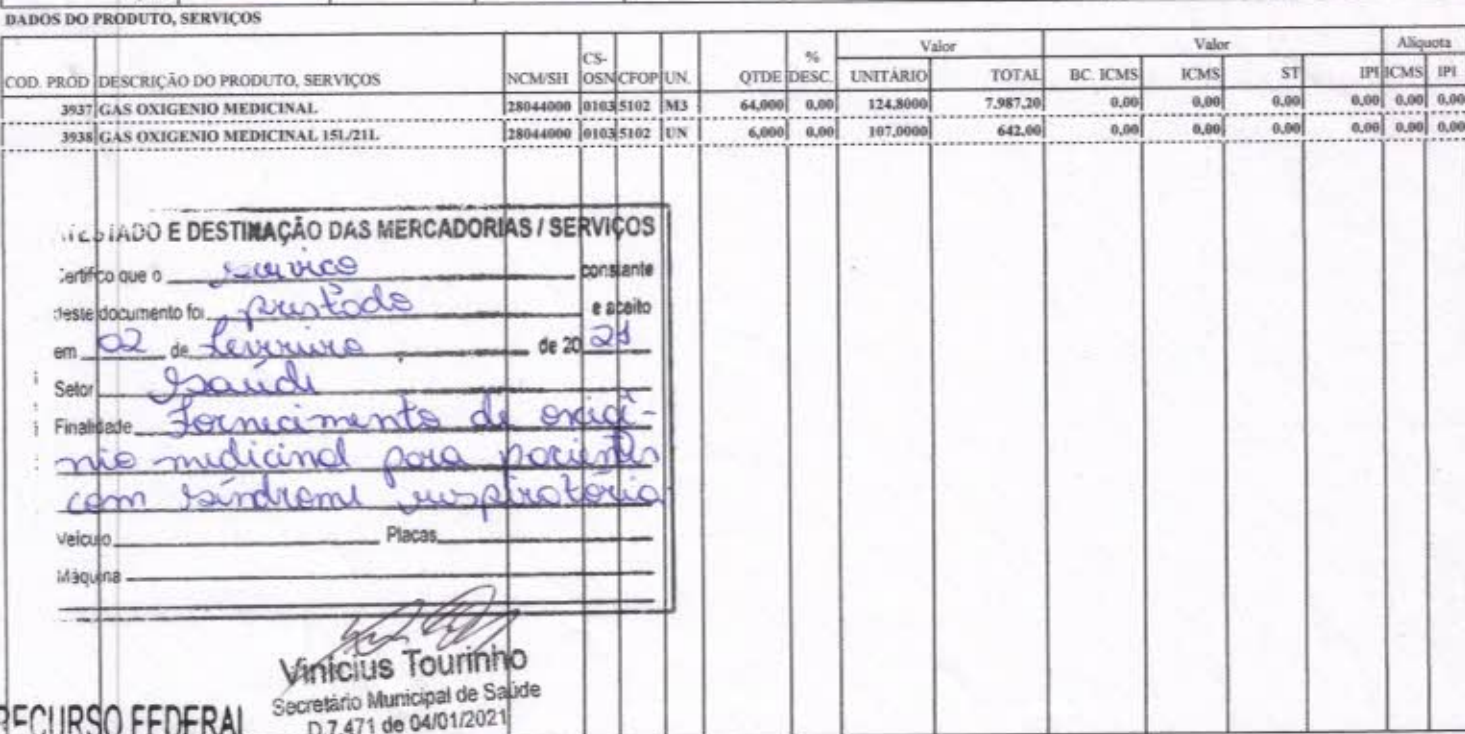 DADOS DO PRODUTO, SERVIÇOS
COD. PROD DESCRIÇÃO DO PRODUTO, SERVIÇOS NCM/SH CS-OSN CFOP UN. QTDE % DESC. Valor UNITÁRIO TOTAL Valor BC. ICMS ICMS ST IPI Alíquota ICMS IPI
3937 GAS OXIGENIO MEDICINAL 28044000 0103 5102 M3 64,000 0,00 124,8000 7.987,20 0,00 0,00 0,00 0,00 0,00 0,00
3938 GAS OXIGENIO MEDICINAL 15L/21L 28044000 0103 5102 UN 6,000 0,00 107,0000 642,00 0,00 0,00 0,00 0,00 0,00 0,00
E DESTINAÇÃO DAS MERCADORIAS / SERVIÇOS
Certifico que o serviço constante
deste documento foi prestado e aceito
em 02 de fevereiro de 2021
Setor Saúde
Finalidade Fornecimento de oxigê-
nio medicinal para pacientes
com síndrome respiratória
Veículo Placas
Máquina
Vinícius Tourinho
Secretário Municipal de Saúde
D.7.471 de 04/01/2021
RECURSO FEDERAL